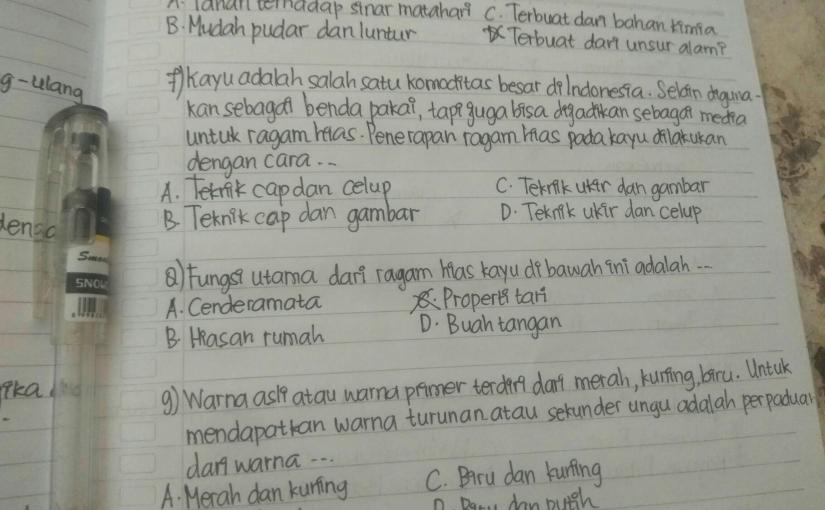 A. Tahan terhadap sinar matahari C. Terbuat dari bahan kimia
B. Mudah pudar dan luntur D. Terbuat dari unsur alami
g-ulang
7) Kayu adalah salah satu komoditas besar di Indonesia. Selain diguna-
kan sebagai benda pakai, tapi juga bisa dijadikan sebagai media
untuk ragam hias. Penerapan ragam hias pada kayu dilakukan
dengan cara ...
A. Teknik cap dan celup C. Teknik ukir dan gambar
B. Teknik cap dan gambar D. Teknik ukir dan celup
SNOW
8) Fungsi utama dari ragam hias kayu di bawah ini adalah ...
A. Cenderamata C. Properti tari
B. Hiasan rumah D. Buah tangan
ika
9) Warna asli atau warna primer terdiri dari merah, kuning, biru. Untuk
mendapatkan warna turunan atau sekunder ungu adalah perpaduan
dari warna ...
A. Merah dan kuning C. Biru dan kuning
D. Biru dan putih